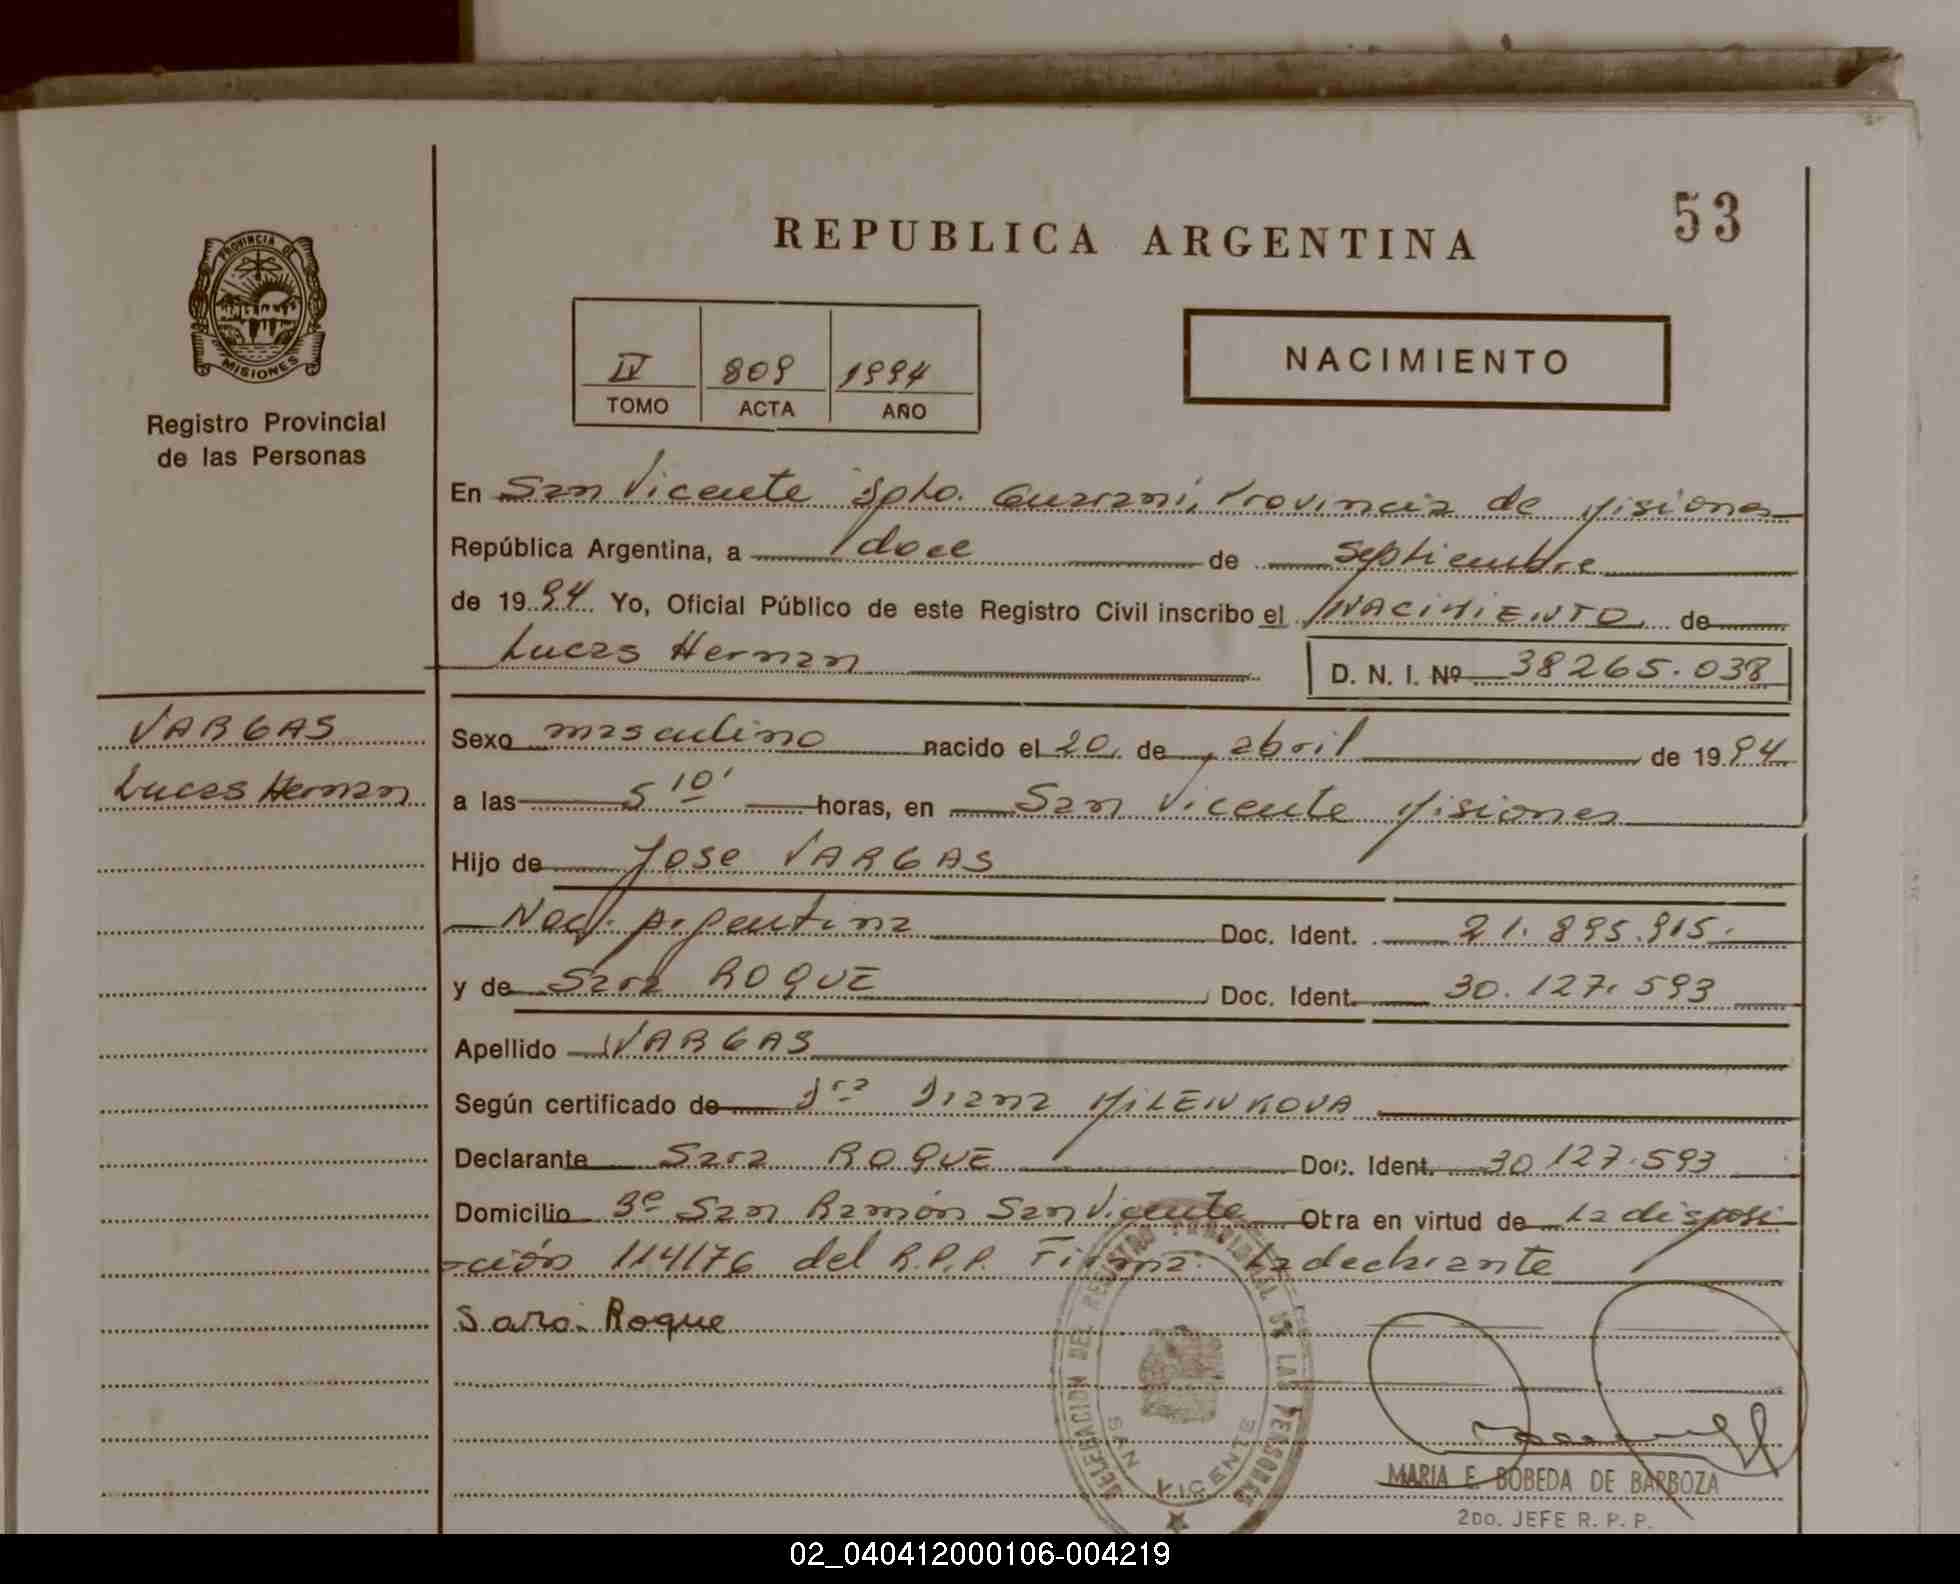 53
REPUBLICA ARGENTINA
PROVINCIA DE
MISIONES
Registro Provincial
de las Personas
IV 809 1994
TOMO ACTA AÑO
NACIMIENTO
En San Vicente Dpto. Guarani, Provincia de Misiones
República Argentina, a doce de septiembre
de 1994 Yo, Oficial Público de este Registro Civil inscribo el NACIMIENTO de
Lucas Hernan D. N. I. Nº 38265.038
VARGAS
Lucas Hernan
Sexo masculino nacido el 20 de abril de 1994
a las 5 10' horas, en San Vicente Misiones
Hijo de Jose VARGAS
Nac. Argentina Doc. Ident. 21.895.915.
y de Sara ROQUE Doc. Ident. 30.127.593
Apellido VARGAS
Según certificado de Dra Diana MILENKOVA
Declarante Sara ROQUE Doc. Ident. 30 127.593
Domicilio Bº San Ramón San Vicente Otra en virtud de La disposi
ción 114/76 del R.P.P. Firma: La declarante
Sara Roque
DELEGACION DEL REGISTRO PROVINCIAL DE LAS PERSONAS
SAN VICENTE
MARIA E. BOBEDA DE BARBOZA
2DO. JEFE R. P. P.
02_040412000106-004219